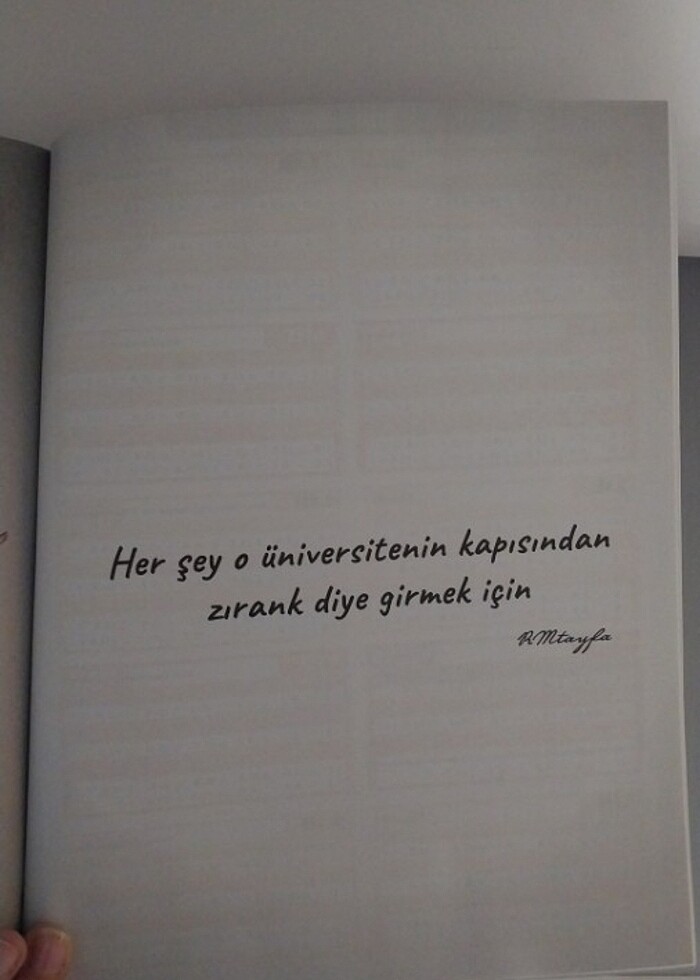 Her şey o üniversitenin kapısından
zırank diye girmek için
RMtayfa